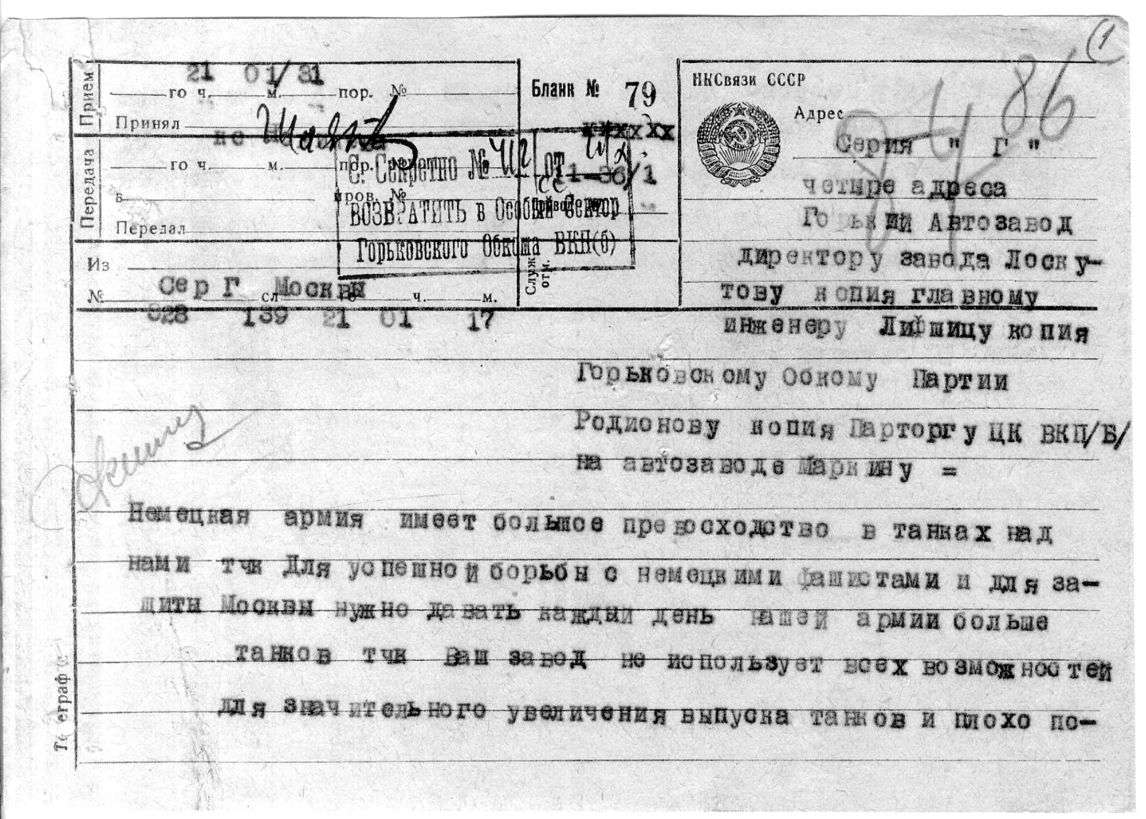 1
86
21 01/31
Прием
го ч. м. пор. №
Бланк № 79
НКСвязи СССР
Принял
Адрес
Передача
го ч. м. пор. №
С. Секретно № от
Серия " Г "
четыре адреса
в пров. №
ВОЗВРАТИТЬ в Особый Сектор
Горьковского Обкома ВКП(б)
Передал
Горький Автозавод
директору завода Лоску-
Из
Служ. отм.
Сер Г Москвы
№ сл. ч. м.
828 139 21 01 17
тову копия главному
инженеру Лифшицу копия
Горьковскому Обкому Партии
Родионову копия Парторгу ЦК ВКП/Б/
на автозаводе Маркину =
Немецкая армия имеет большое превосходство в танках над
нами тчк Для успешной борьбы с немецкими фашистами и для за-
щиты Москвы нужно давать каждый день нашей армии больше
танков тчк Ваш завод не использует всех возможностей
для значительного увеличения выпуска танков и плохо по-